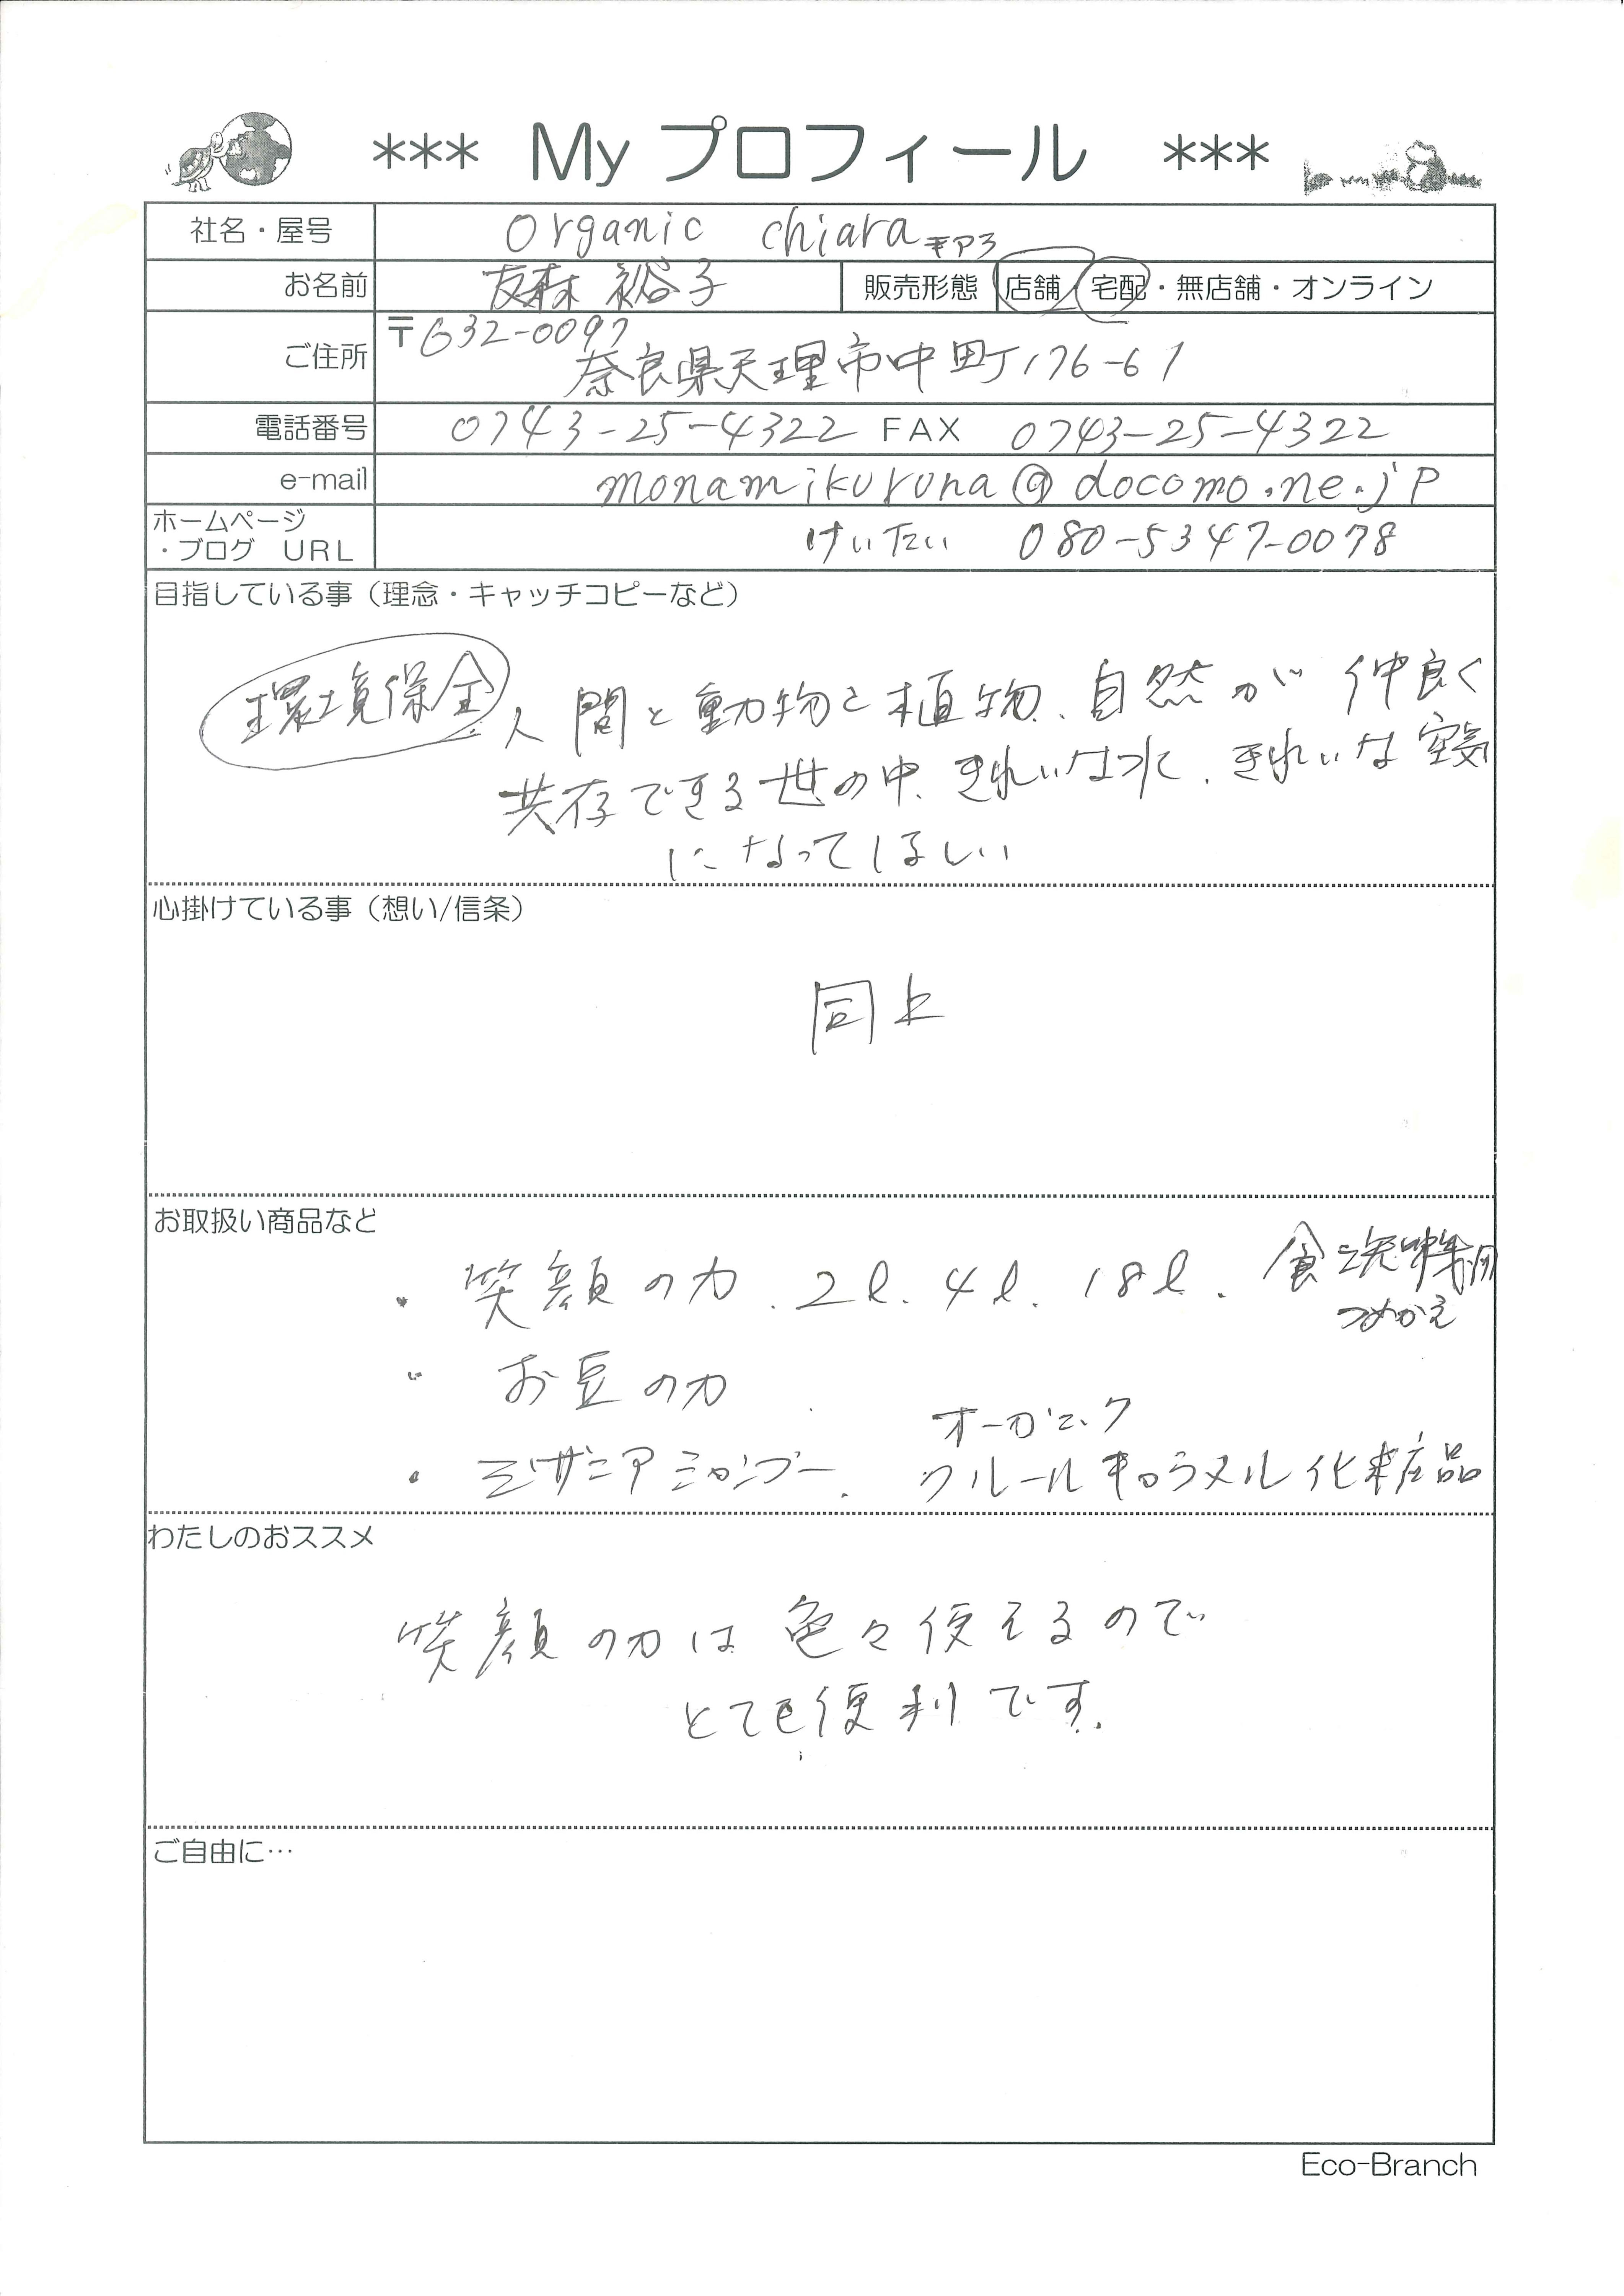 *** My プロフィール ***
社名・屋号 Organic chiara キアラ
お名前 友森 裕子 販売形態 店舗・宅配・無店舗・オンライン
ご住所 〒632-0097
奈良県天理市中町176-61
電話番号 0743-25-4322 FAX 0743-25-4322
e-mail monamikuruna@docomo.ne.jp
ホームページ
・ブログ URL けいたい 080-5347-0078
目指している事（理念・キャッチコピーなど）
環境保全 人間と動物と植物、自然が仲良く
共存できる世の中、きれいな水、きれいな空気
になってほしい
心掛けている事（想い/信条）
同上
お取扱い商品など
・笑顔の力、2ℓ、4ℓ、18ℓ、食洗機用
つめかえ
・お豆の力
オーガニック
・モザニアシャンプー、クルールキャラメル化粧品
わたしのおススメ
笑顔の力は色々使えるので
とても便利です。
ご自由に…
Eco-Branch